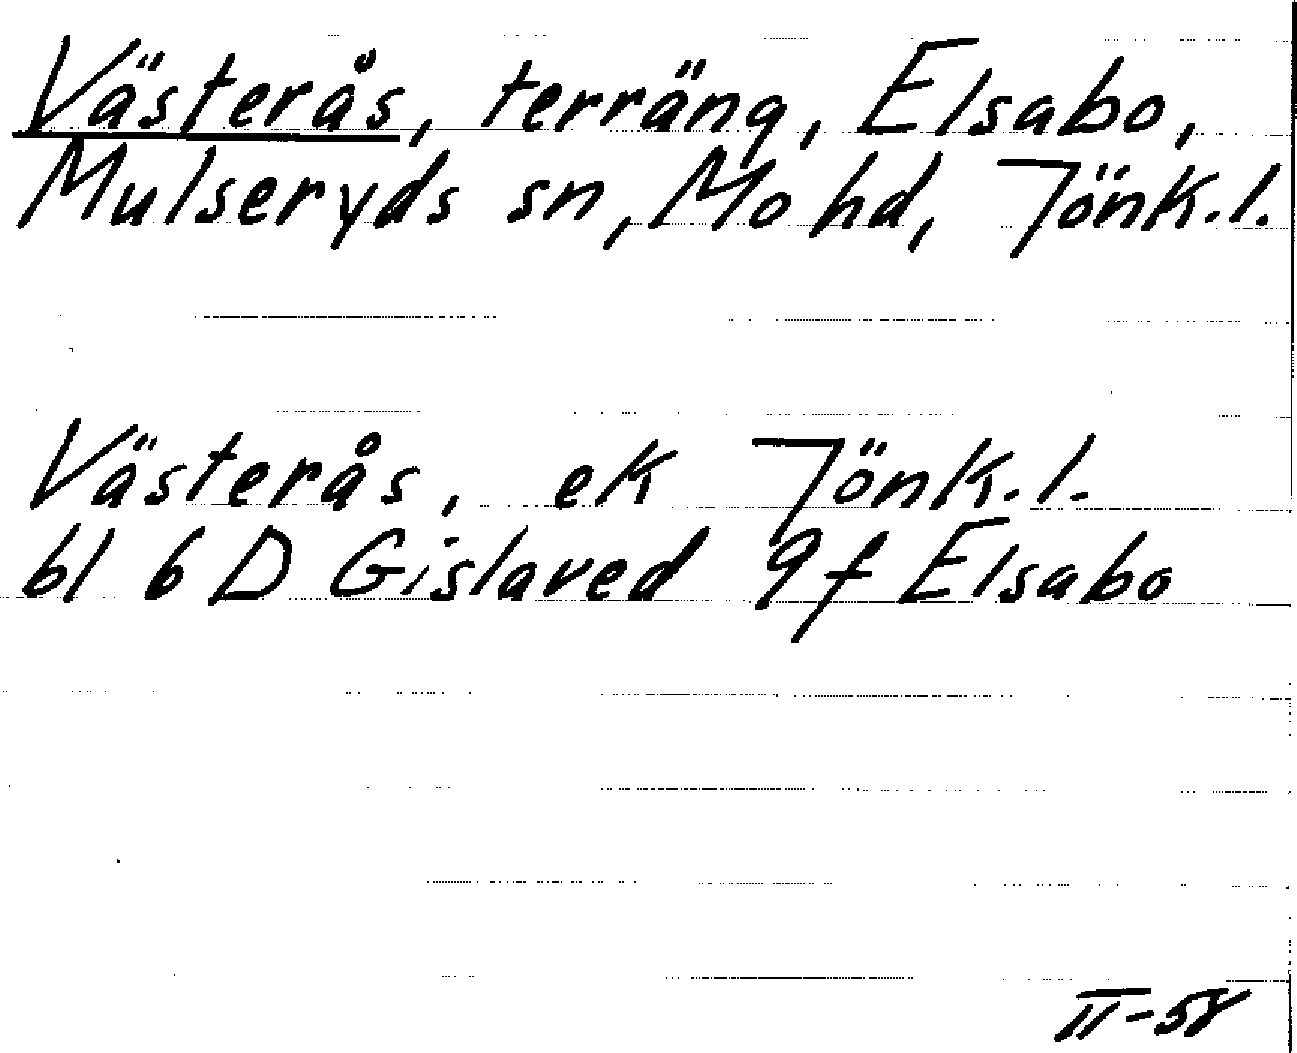 Västerås, terräng, Elsabo,
Mulseryds sn, Mo hd, Jönk.l.
Västerås, ek Jönk.l.
bl 6 D Gislaved 9f Elsabo
II-58